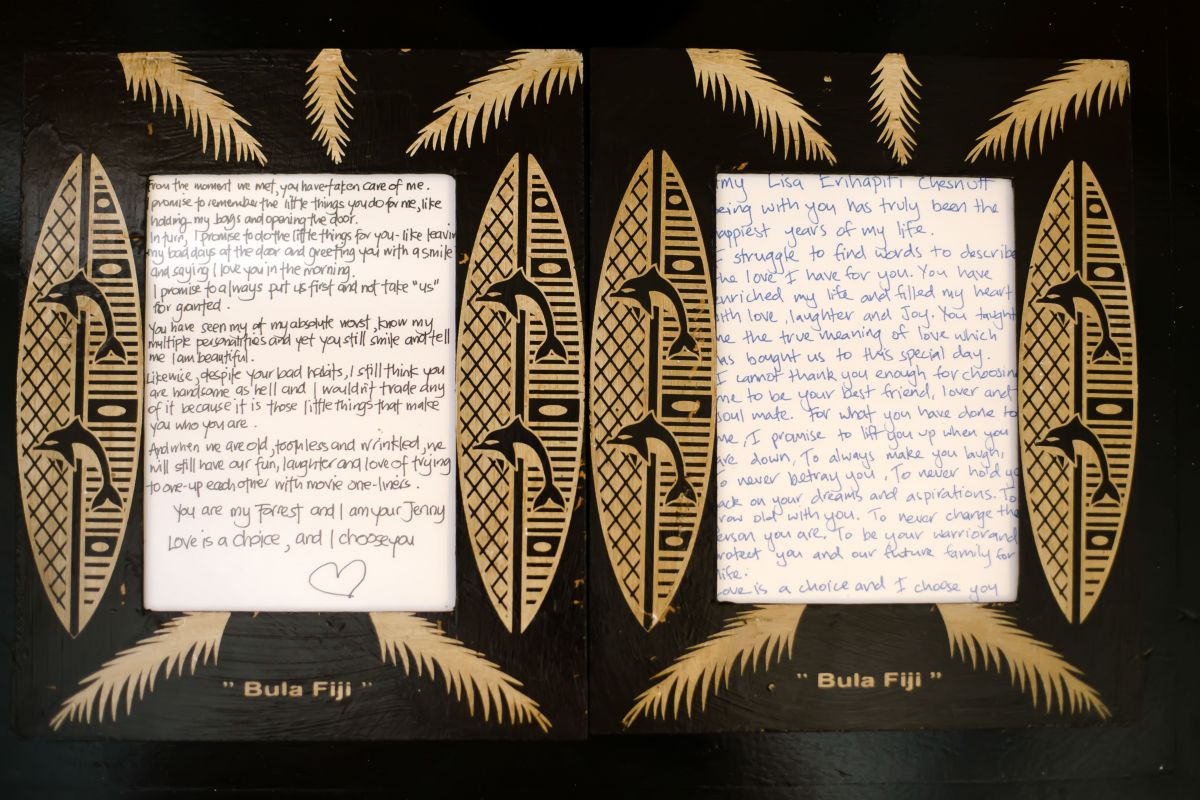 From the moment we met, you have taken care of me.
I promise to remember the little things you do for me, like
holding my bags and opening the door.
In turn, I promise to do the little things for you - like leavin
my bad days at the door and greeting you with a smile
and saying I love you in the morning.
I promise to always put us first and not take "us"
for granted.
You have seen my at my absolute worst, know my
multiple personalities and yet you still smile and tell
me I am beautiful.
Likewise, despite your bad habits, I still think you
are handsome as hell and I wouldn't trade any
of it because it is those little things that make
you who you are.
And when we are old, toothless and wrinkled, we
will still have our fun, laughter and love of trying
to one-up each other with movie one-liners.
You are my Forrest and I am your Jenny
Love is a choice, and I choose you
" Bula Fiji "
my Lisa Erihapiti Chesnutt
eing with you has truly been the
appiest years of my life.
I struggle to find words to describe
the love I have for you. You have
enriched my life and filled my heart
ith love, laughter and Joy. You taught
me the true meaning of love which
as bought us to this special day.
I cannot thank you enough for choosin
me to be your best friend, lover and
soul mate. For what you have done to
me, I promise to lift you up when you
are down, To always make you laugh,
To never betray you, To never hold yo
ack on your dreams and aspirations. To
row old with you. To never change the
erson you are. To be your warrior and
rotect you and our future family for
life.
ove is a choice and I choose you
" Bula Fiji "